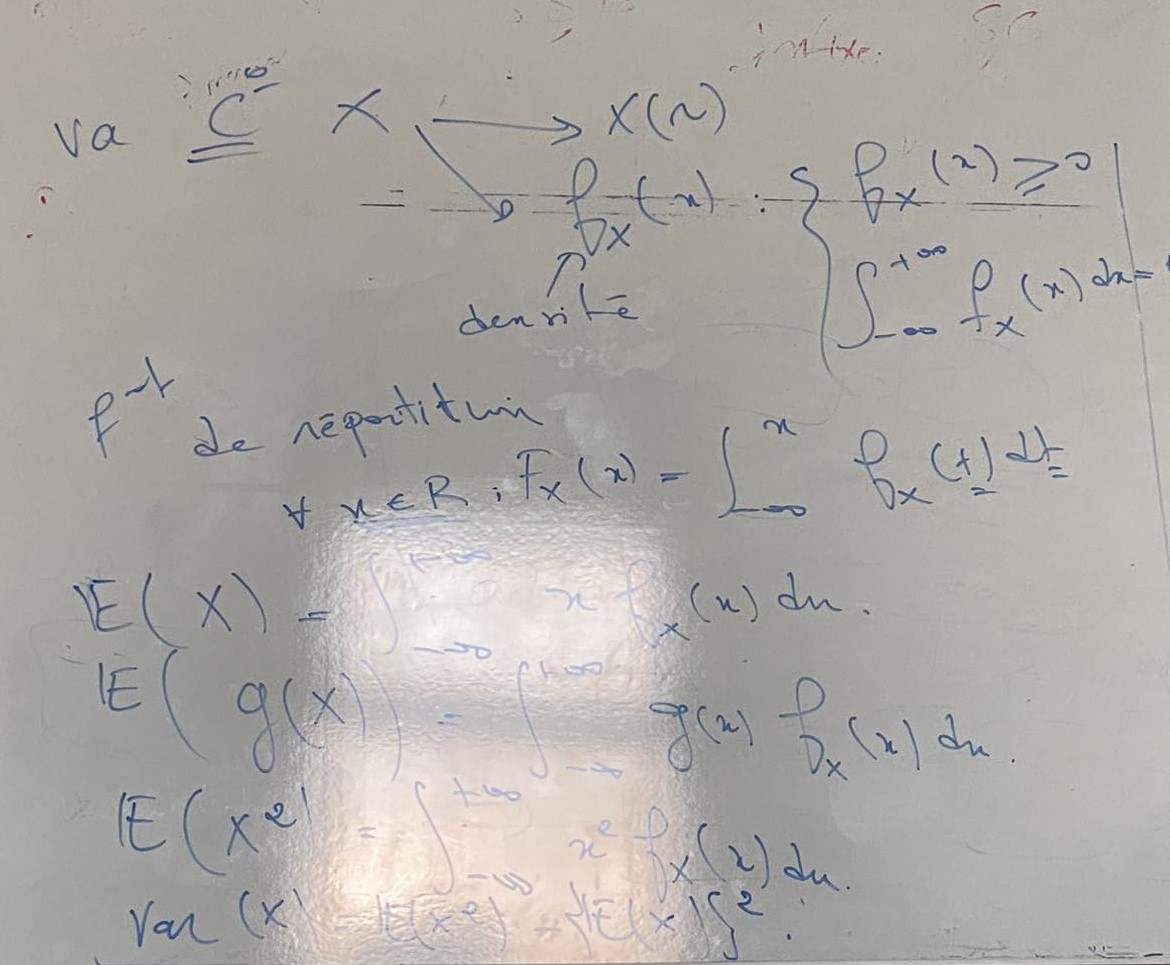 va C X → X(Ω)
f_X(x) : { f_X(x) ≥ 0
densité
∫_{-∞}^{+∞} f_X(x) dx =
f^{-t} de répartition
∀ x ∈ R, F_X(x) = ∫_{-∞}^{x} f_X(t) dt
E(X) = ∫_{-∞}^{+∞} x f_X(x) dx.
E(g(X)) = ∫_{-∞}^{+∞} g(x) f_X(x) dx.
E(X²) = ∫_{-∞}^{+∞} x² f_X(x) dx.
Var(X) = E(X²) - {E(X)}².